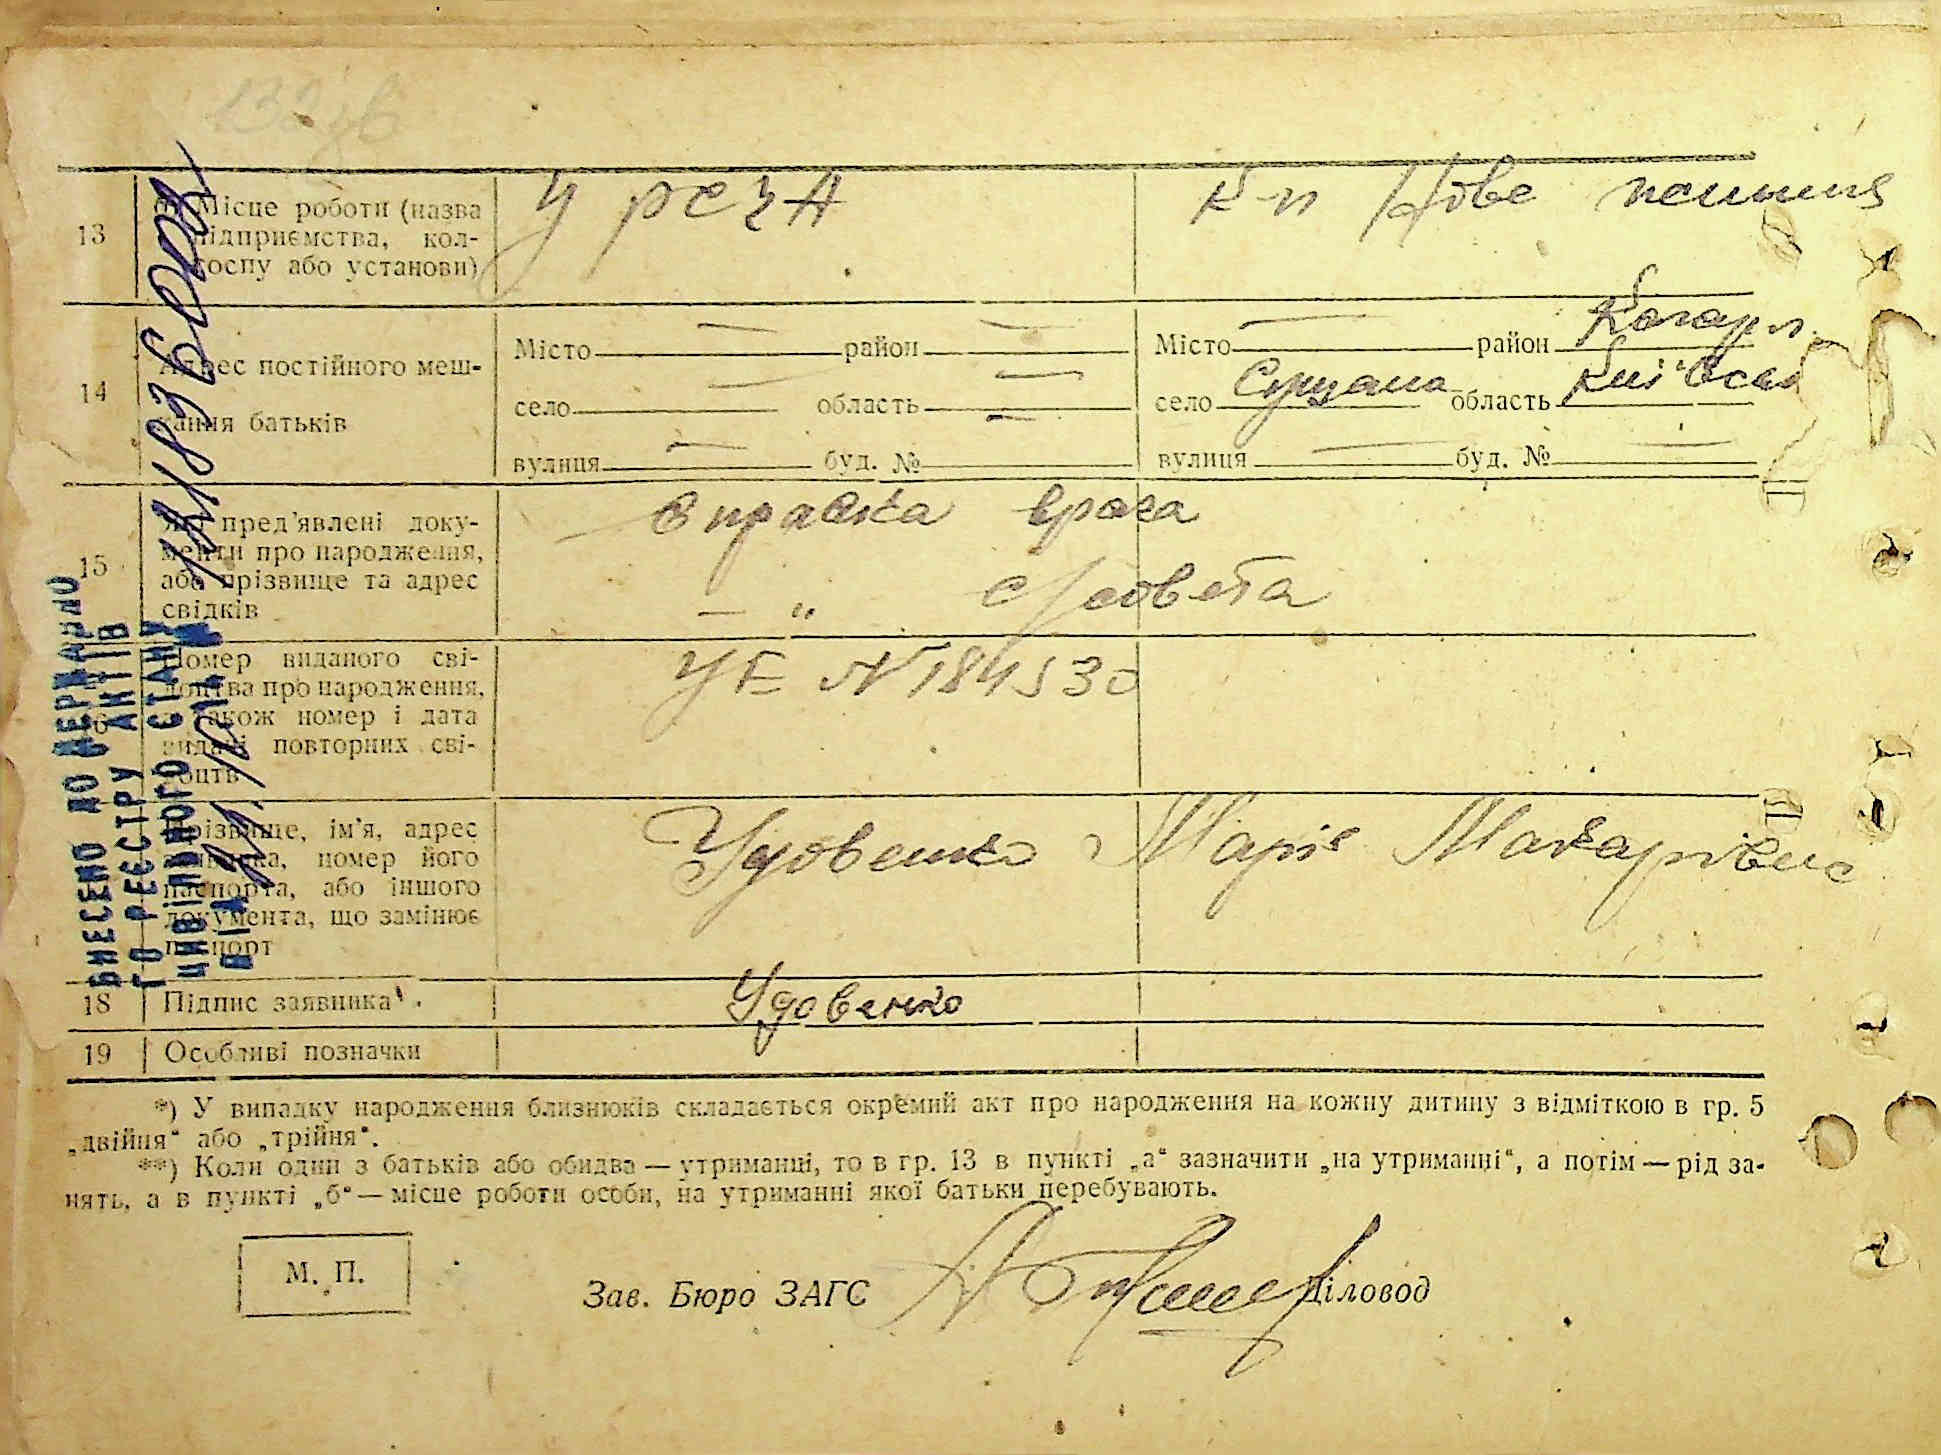 132 зв
13
б) Місце роботи (назва
підприємства, кол-
госпу або установи)
У РСЧА
к-п Нове
14
Адрес постійного меш-
кання батьків
Місто — район —
село — область —
вулиця — буд. №
Місто — район Кагарл.
село область Київськ
вулиця — буд. № —
15
Які пред'явлені доку-
менти про народження,
або прізвище та адрес
свідків
Справка врача
— „ с/совета
16
Номер виданого сві-
доцтва про народження,
а також номер і дата
видачі повторних сві-
доцтв
УЕ N 184530
Прізвище, ім'я, адрес
заявника, номер його
паспорта, або іншого
документа, що замінює
паспорт
Удовенко Марія Макарівна
18
Підпис заявника
Удовенко
19
Особливі позначки
ВНЕСЕНО ДО ДЕРЖАВНО
ГО РЕЄСТРУ АКТІВ
ЦИВІЛЬНОГО СТАНУ
ВІД
*) У випадку народження близнюків складається окремий акт про народження на кожну дитину з відміткою в гр. 5
„двійня“ або „трійня“.
**) Коли один з батьків або обидва — утриманці, то в гр. 13 в пункті „а“ зазначити „на утриманці“, а потім — рід за-
нять, а в пункті „б“ — місце роботи особи, на утриманні якої батьки перебувають.
М. П.
Зав. Бюро ЗАГС
Діловод